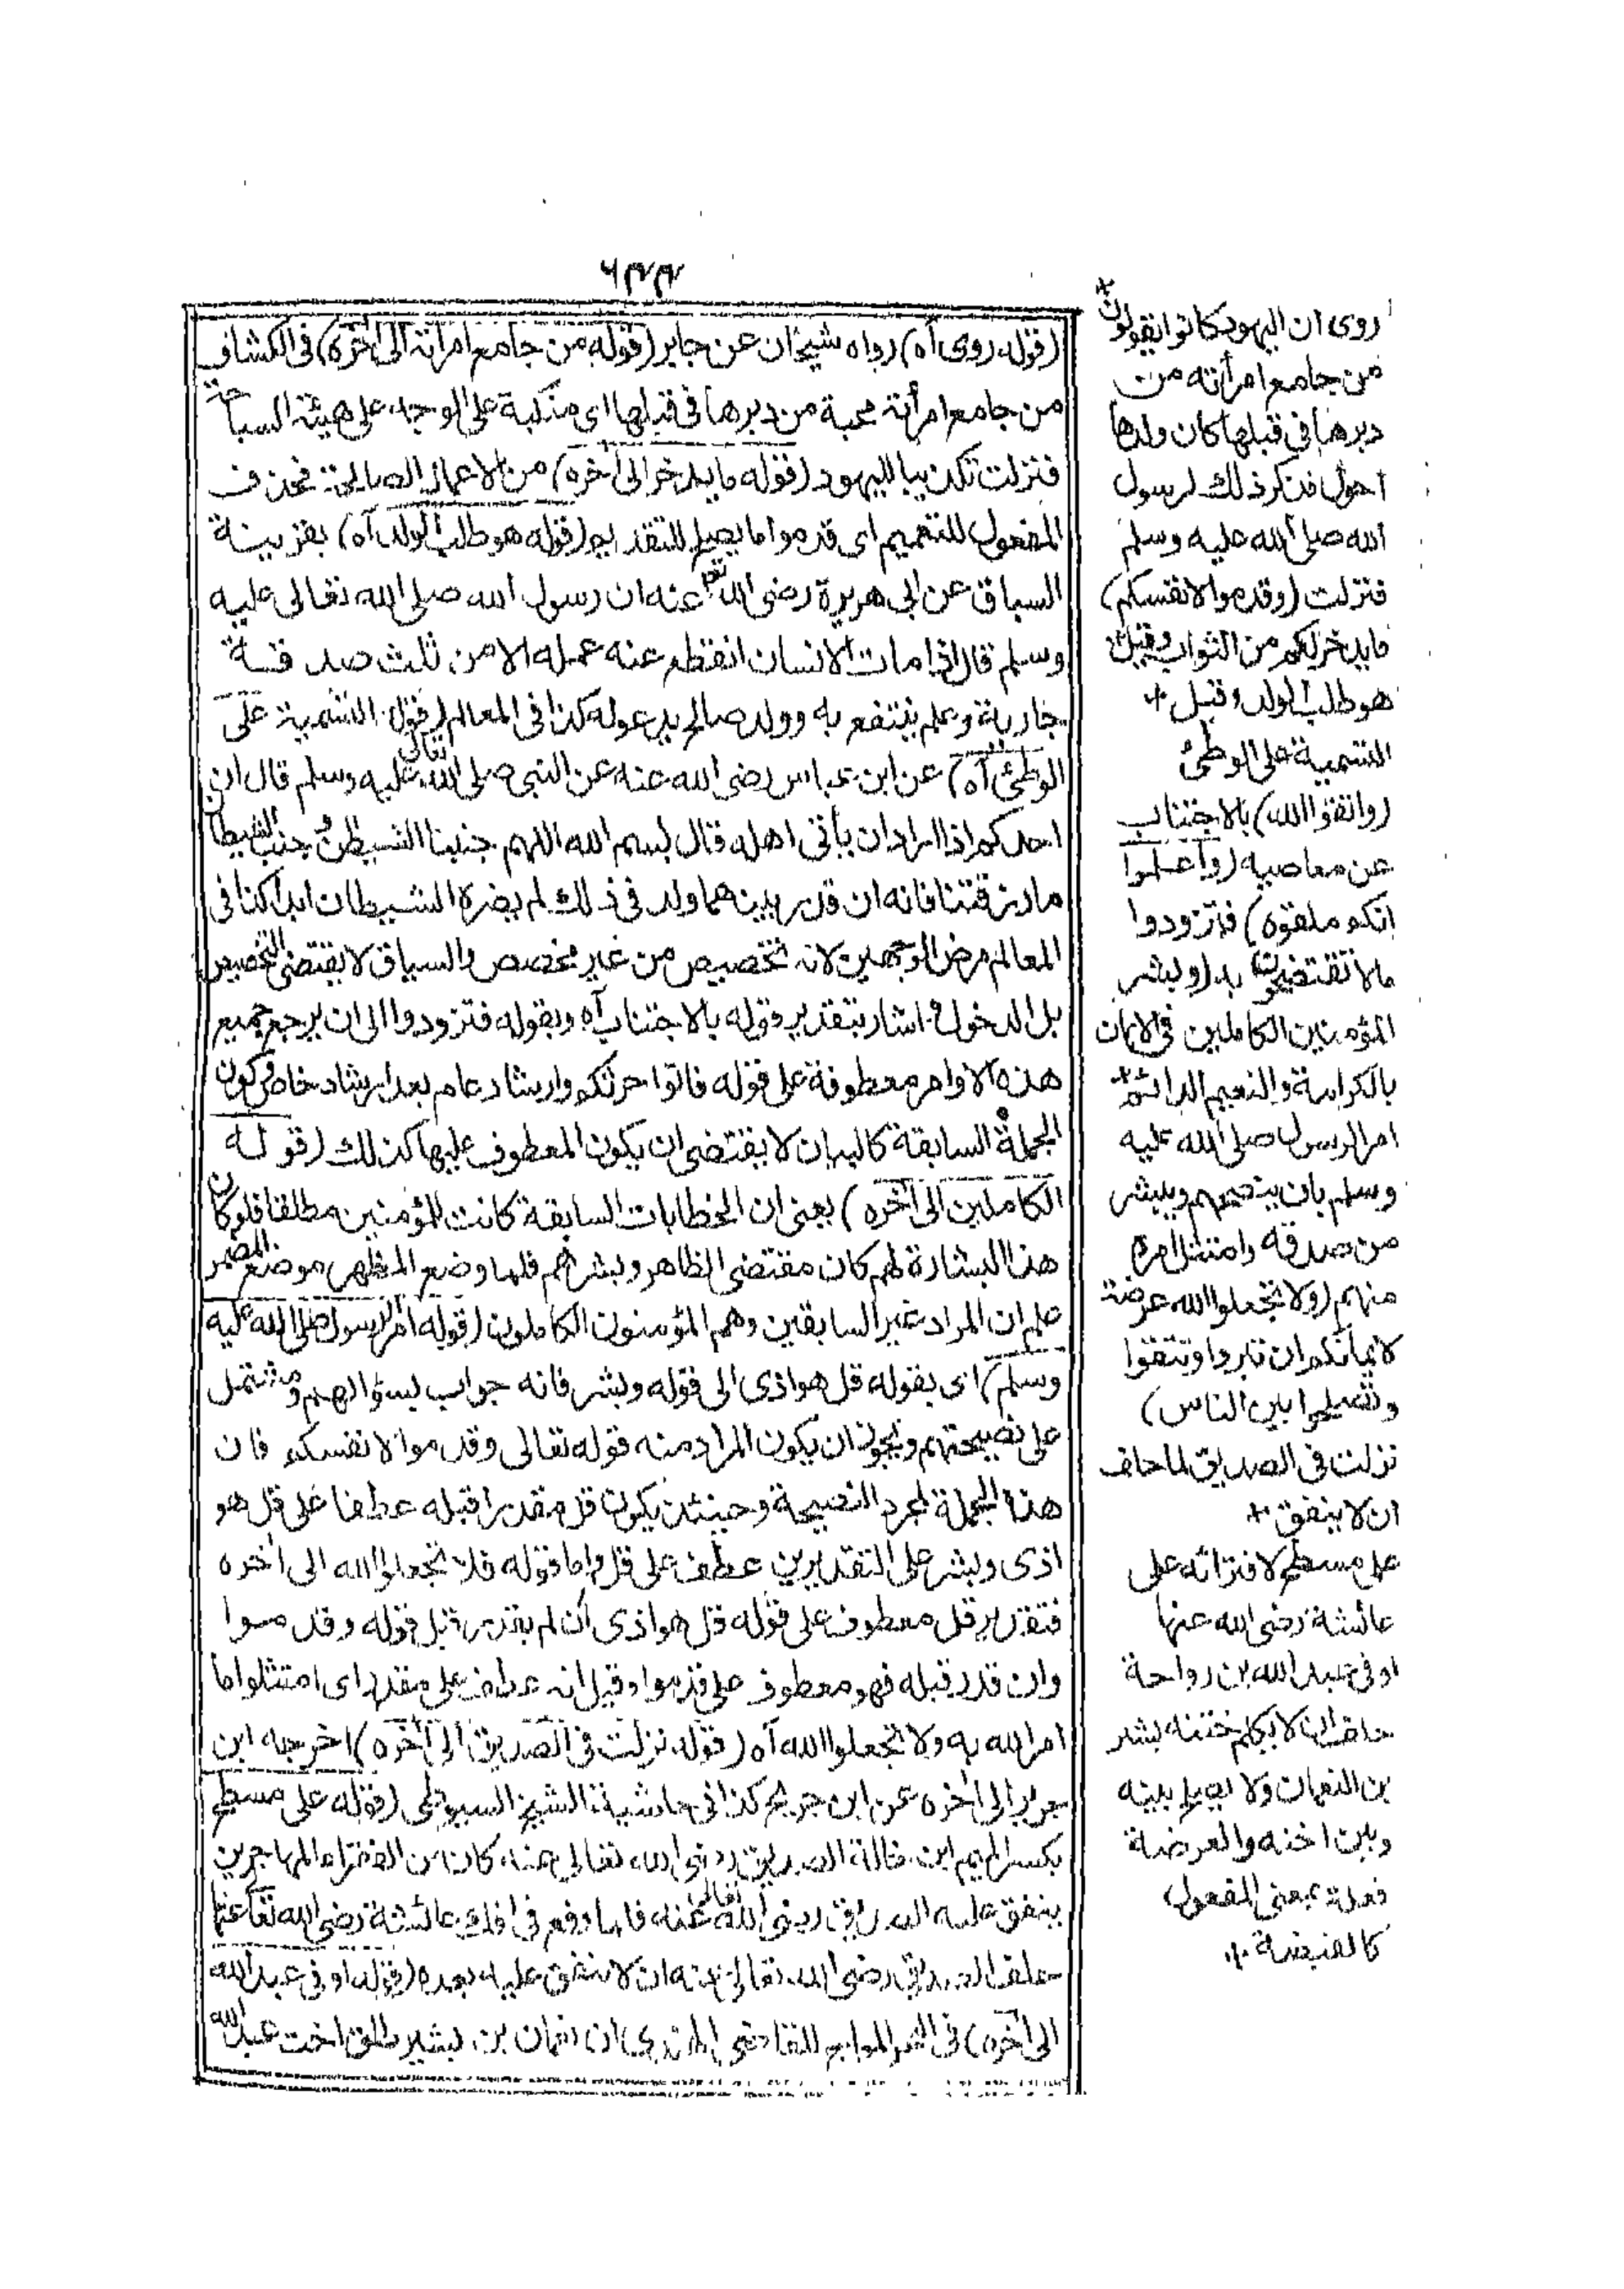 ٦٣٣
(قوله روى آه) رواه شيخان عن جابر (قوله من جامع امرأته الى آخره) فى الكشاف
من جامع امرأته مجبة من دبرها فى قبلها اى منكبة على الوجه على هيئة الساجدة
فنزلت تكذيبا لليهود (قوله ما يدخر الى آخره) من الاعمال الصالحة فحذف
المفعول للتعميم اى قدموا ما يصلح للتقديم (قوله هو طلب الولد آه) بقرينة
السباق عن ابى هريرة رضى الله تعالى عنه ان رسول الله صلى الله تعالى عليه
وسلم قال اذا مات الانسان انقطع عنه عمله الا من ثلث صدقة
جارية وعلم ينتفع به وولد صالح يدعوله كذا فى المعالم (قوله التسمية على
الوطئ آه) عن ابن عباس رضى الله عنه عن النبى صلى الله تعالى عليه وسلم قال ان
احدكم اذا اراد ان يأتى اهله قال بسم الله اللهم جنبنا الشيطن وجنب الشيطان
ما رزقتنا فانه ان قدر بينهما ولد فى ذلك لم يضره الشيطان ابدا كذا فى
المعالم مرض الوجهين لانه تخصيص من غير مخصص والسياق لا يقتضى التخصيص
بل الدخول اشار بتقدير قوله بالاجتناب آه وبقوله فتزودوا الى ان يرجع جميع
هذه الاوامر معطوفة على قوله فاتوا حرثكم وارشاد عام بعد ارشاد خاص وكون
الجملة السابقة كالبيان لا يقتضى ان يكون المعطوف عليها كذلك (قوله
الكاملين الى آخره) يعنى ان الخطابات السابقة كانت للمؤمنين مطلقا فلو كان
هذا البشارة لهم كان مقتضى الظاهر وبشرهم فلما وضع المظهر موضع المضمر
علم ان المراد غير السابقين وهم المؤمنون الكاملون (قوله امر الرسول صلى الله عليه
وسلم) اى بقوله قل هو اذى الى قوله وبشر فانه جواب لسؤالهم ومشتمل
على نصيحتهم ويجوز ان يكون المراد منه قوله تعالى وقدموا لانفسكم فان
هذا الجملة لمجرد النصيحة وحينئذ يكون قل مقدرا قبله عطفا على قل هو
اذى وبشر على التقديرين عطف على قل واما قوله فلا تجعلوا الله الى آخره
فتقدير قل معطوف على قوله قل هو اذى ان لم يقدر قبل قوله وقدموا
وان قدر قبله فهو معطوف على قدموا وقيل انه عطف على مقدر اى امتثلوا ما
امر الله به ولا تجعلوا الله آه (قوله نزلت فى الصديق الى آخره) اخرجه ابن
جرير الى آخره عن ابن جريج كذا فى حاشية الشيخ السيوطى (قوله على مسطح
بكسر الميم ابن خالة الصديق رضى الله تعالى عنه كان من الفقراء المهاجرين
ينفق عليه الصديق رضى الله تعالى عنه فلما وقع فى افك عائشة رضى الله تعا عنها
حلف الصديق رضى الله تعالى عنه ان لا ينفق عليه بعده (قوله او فى عبد الله
الى آخره) فى للقاضى ان نعمان بن بشير طلق اخت عبد الله
روى ان اليهود كانوا يقولون
من جامع امرأته من
دبرها فى قبلها كان ولدها
احول فذكر ذلك لرسول
الله صلى الله عليه وسلم
فنزلت (وقدموا لانفسكم)
ما يدخر لكم من الثواب وقيل
هو طلب الولد وقيل
التسمية على الوطئ
(واتقوا الله) بالاجتناب
عن معاصيه (واعلموا
انكم ملقوه) فتزودوا
ما لا تفتضحون به (وبشر
المؤمنين الكاملين فى الايمان
بالكرامة والنعيم الدائم
امر الرسول صلى الله عليه
وسلم بان ينصحهم ويبشر
من صدقه وامتثل امره
منهم (ولا تجعلوا الله عرضة
لايمانكم ان تبروا وتتقوا
وتصلحوا بين الناس)
نزلت فى الصديق لما حلف
ان لا ينفق
على مسطح لافترائه على
عائشة رضى الله عنها
او فى عبد الله بن رواحة
حلف ان لا يكلم ختنه بشر
بن النعمان ولا يصلح بينه
وبين اخته والعرضة
فعلة بمعنى المفعول
كالقبضة